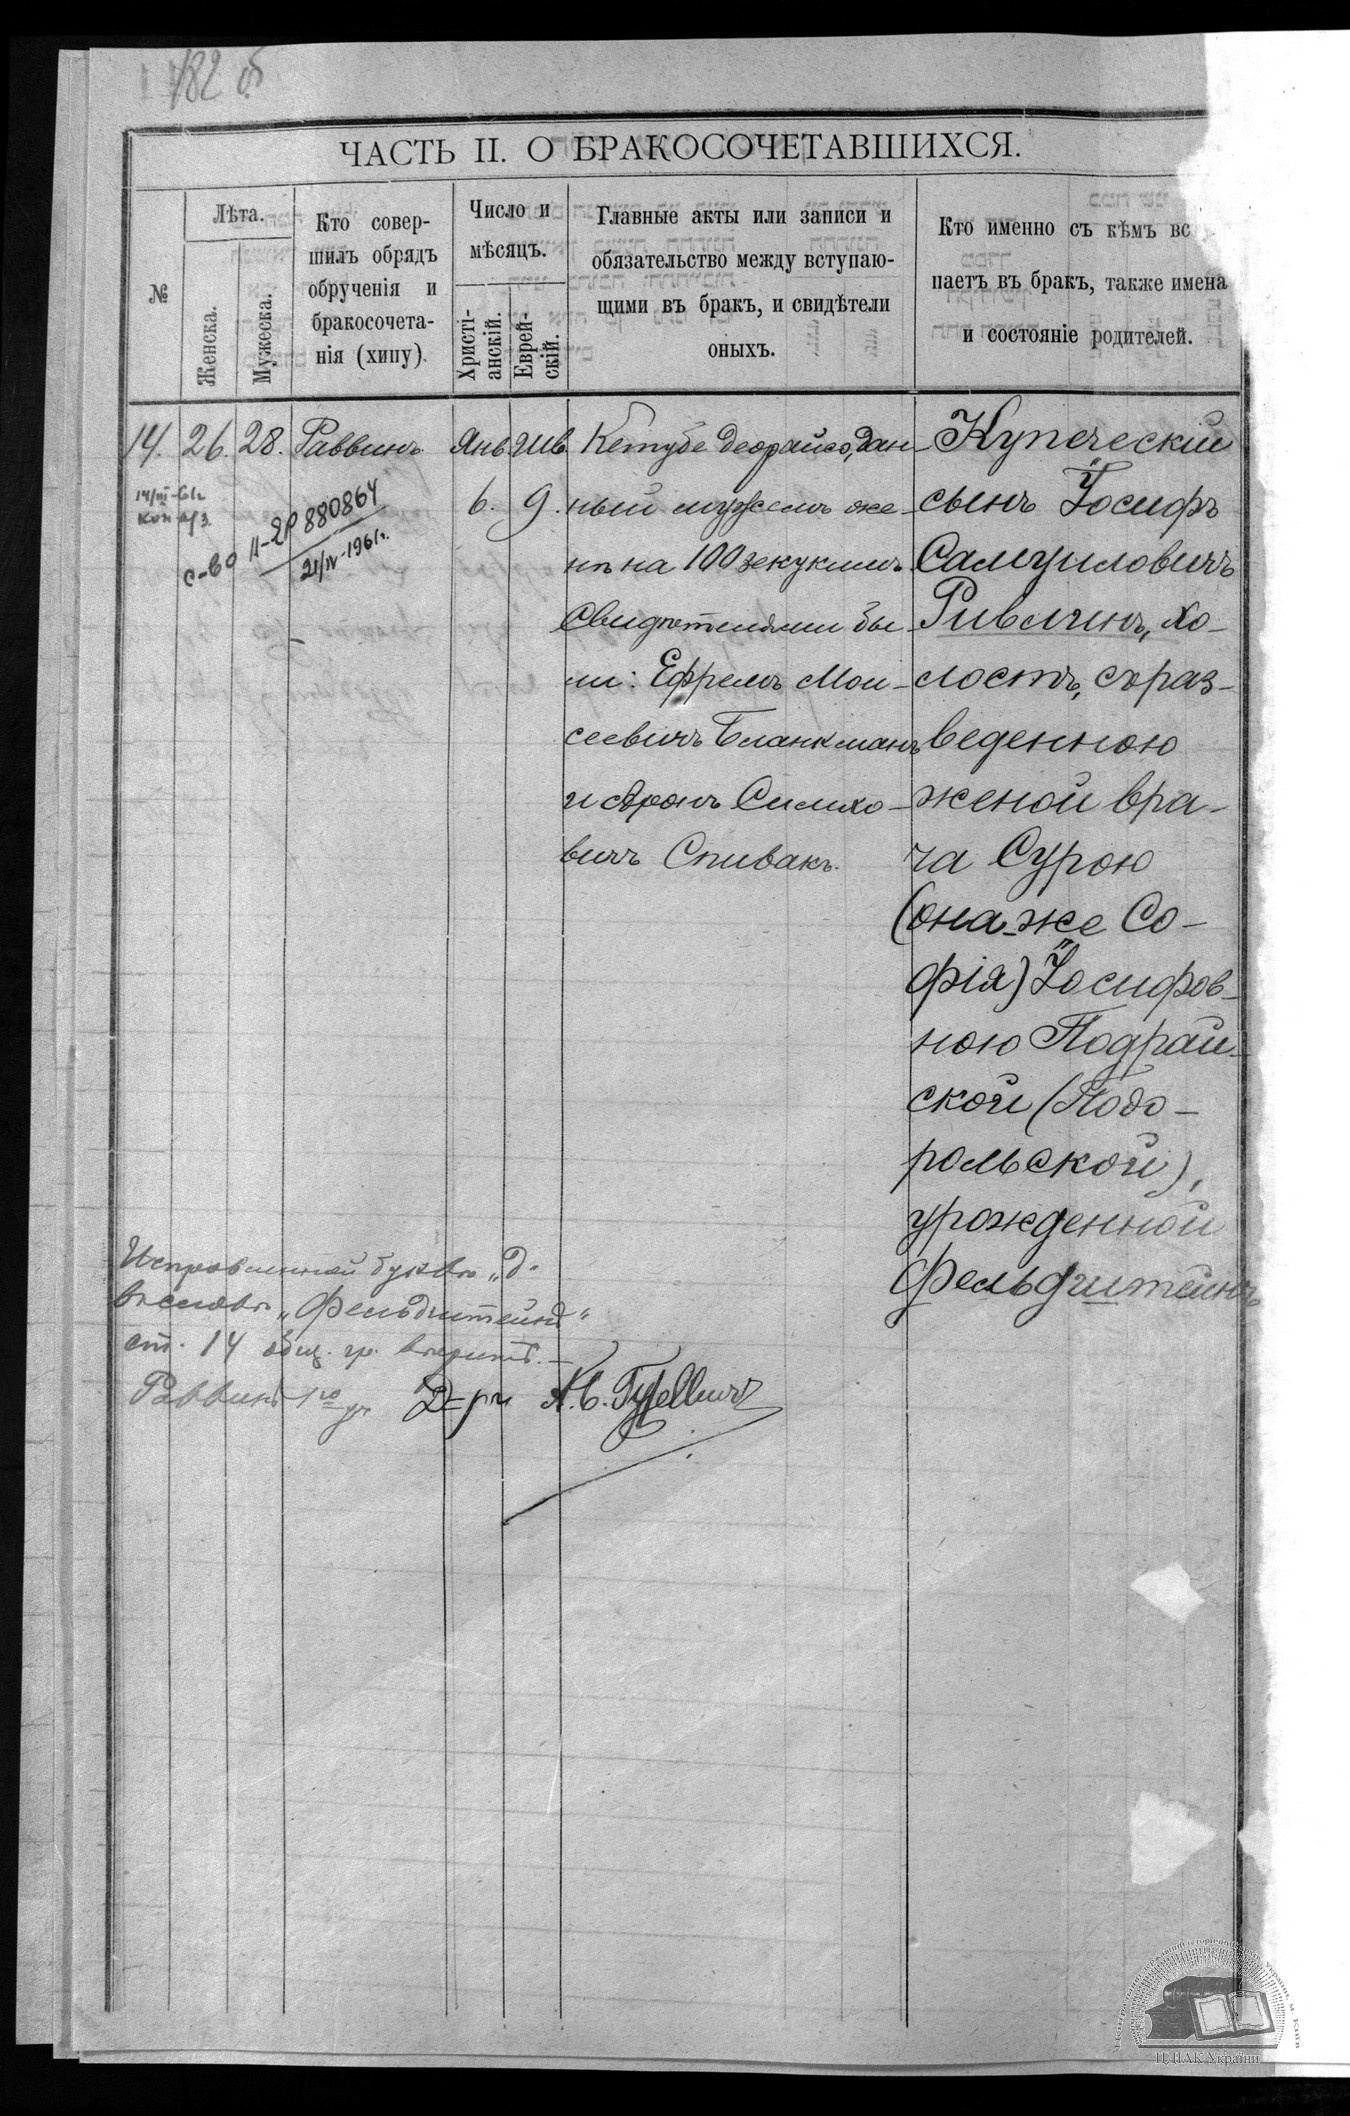 182 об
ЧАСТЬ II. О БРАКОСОЧЕТАВШИХСЯ.
№
Лѣта.
Женска.
Мужеска.
Кто совер-
шилъ обрядъ
обрученія и
бракосочета-
нія (хипу).
Число и
мѣсяцъ.
Христі-
анскій.
Еврей-
скій.
Главные акты или записи и
обязательство между вступаю-
щими въ бракъ, и свидѣтели
оныхъ.
Кто именно съ кѣмъ вс
паетъ въ бракъ, также имена
и состояніе родителей.
14.
26.
28.
Раввинъ
Янв.
6.
Шв.
9.
Кетубе деорайсо, дан-
ный мужемъ же-
нѣ на 100 зекукимъ
Свидѣтелями бы-
ли: Ефремъ Мои-
сеевичъ Бланкманъ
и Аронъ Симхо-
вичъ Спивакъ.
Купеческій
сынъ Іосифъ
Самуиловичъ
Ривлинъ, хо-
лостъ, съ раз-
веденною
женой вра-
ча Сурою
(она-же Со-
фія) Іосифов-
ною Подрай-
ской (Подо-
рольской),
урожденной
Фельдштейнъ
14/III-61г
коп
с-во II-ЯР 880864
21/IV-1961г.
Исправленной букве „д"
въ словѣ „Фельдштейнъ"
ст. 14 общ. гр. вѣрить.—
Раввинъ Д-ръ
ЦДІАК України